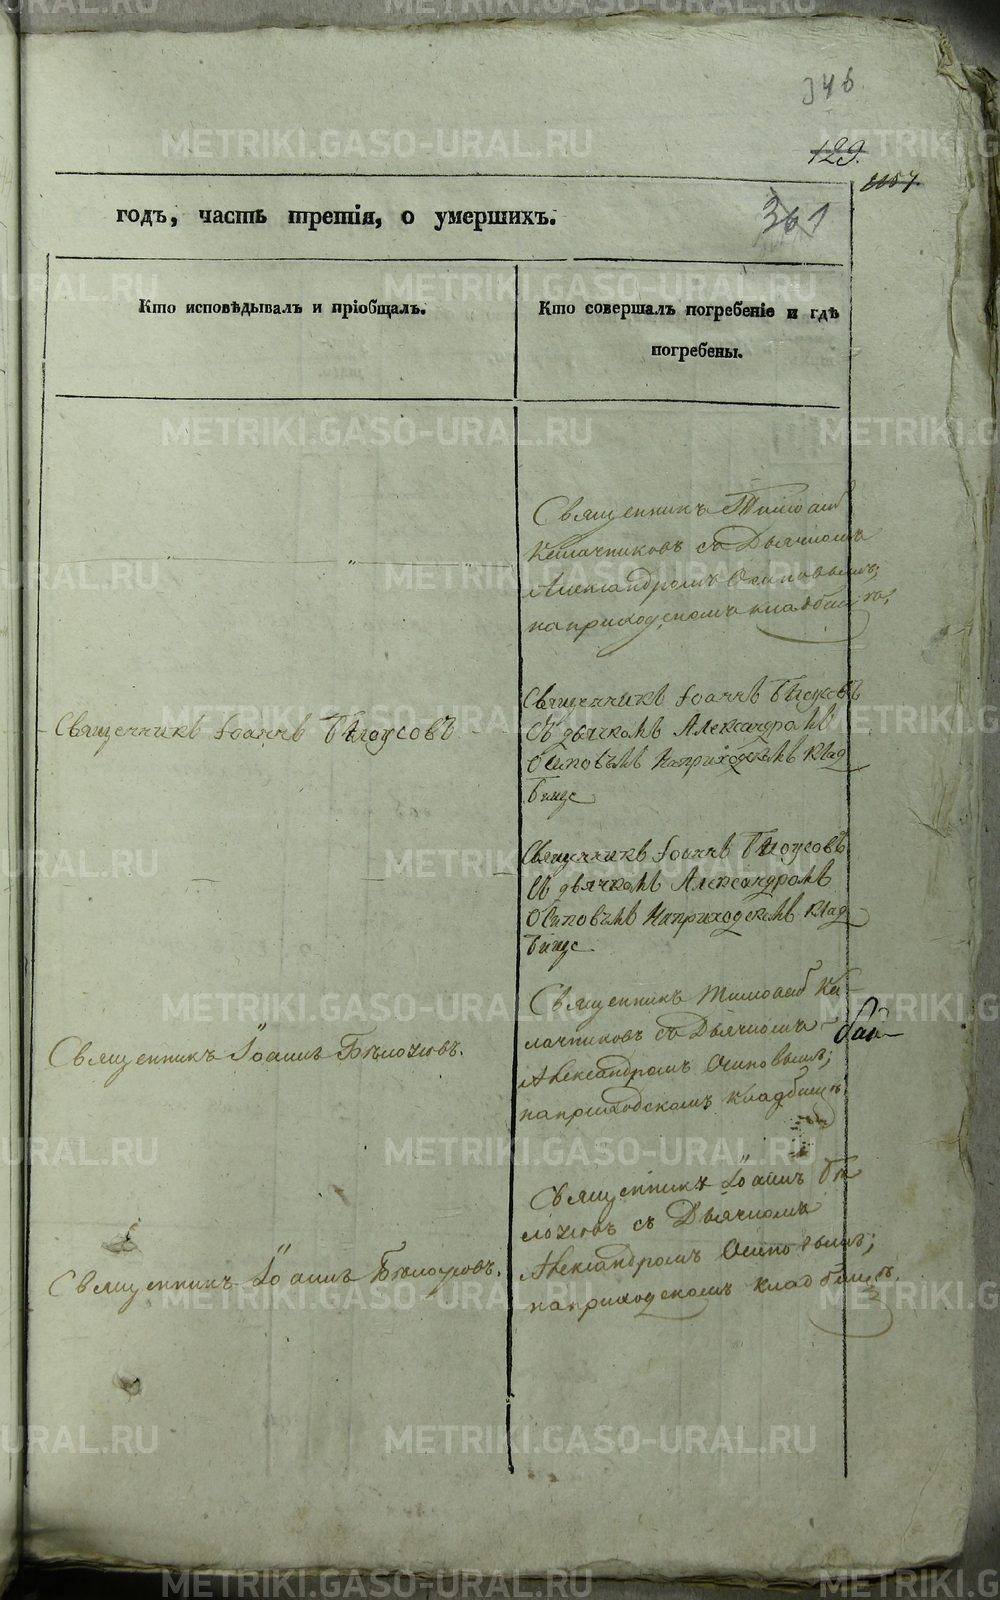 346
129.
1157.
361
годъ, часть третія, о умершихъ.
Кто исповѣдывалъ и пріобщалъ.
Кто совершалъ погребеніе и гдѣ
погребены.
Священникъ Тимоѳей
Калачниковъ съ Дьячкомъ
Александромъ Осиповымъ;
на приходскомъ кладбищѣ.
Священникъ Іоаннъ Бѣлоусовъ
Священникъ Іоаннъ Бѣлоусовъ
Съ дьячкомъ Александромъ
Осиповымъ На приходскомъ Клад
бище
Священникъ Іоаннъ Бѣлоусовъ
Съ дьячкомъ Александромъ
Осиповымъ На приходскомъ Клад
бище
Священникъ Іоаннъ Бѣлоусовъ.
Священникъ Тимоѳей Ка
лачниковъ съ Дьячкомъ
Александромъ Осиповымъ;
на приходскомъ Кладбищѣ.
Священникъ Іоаннъ Бѣлоусовъ.
Священникъ Іоаннъ Бѣ
лоусовъ съ Дьячкомъ
Александромъ Осиповымъ;
на приходскомъ кладбищѣ.
METRIKI.GASO-URAL.RU